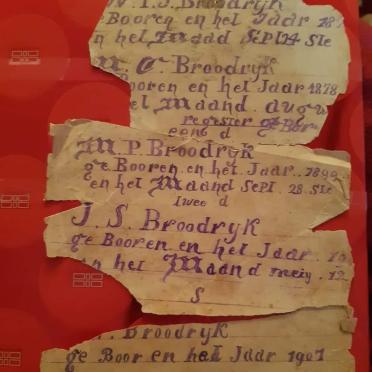 J. Broodryk
ge Booren en het Jaar 18
n het Maad Sept 14 Ste
C. Broodryk
Booren en het Jaar 1878
el Maand. augu
register ge Bor
eene d
M. P. Broodryk
ge Booren en het Jaar.. 1899
en het Maand Sept. 28. Ste
twee d
J. S. Broodryk
ge Booren en het Jaar.
n het Maand meiy. 12
S
Broodryk
ge Boor en het Jaar 1907